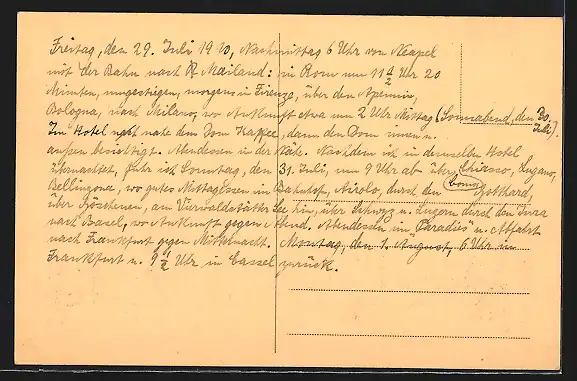 Freitag, den 29. Juli 1910, Nachmittag 6 Uhr von Neapel
mit der Bahn nach Mailand: in Rom um 11 Uhr 20
Minuten, umgestiegen, morgens in Firenze, über den Apennin,
Bologna, nach Milano, wo Ankunft etwa um 2 Uhr Mittag (Sonnabend, den 30. Juli).
Im Hotel nahe dem Dom Kaffee, dann den Dom innen u.
außen besichtigt. Abendessen in der Nähe. Nachdem ich in demselben Hotel
übernachtet, fuhr ich Sonntag, den 31. Juli, um 9 Uhr ab über Chiasso, Como, Lugano,
Bellinzona, wo gutes Mittagessen im Bahnhof, Airolo, durch den Gotthard,
über Göschenen, am Vierwaldstätter See hin, über Schwyz u. Luzern durch den Jura
nach Basel, wo Ankunft gegen Abend. Abendessen im "Paradies" u. Abfahrt
nach Frankfurt gegen Mitternacht. Montag, den 1. August, 6 Uhr in
Frankfurt u. 9 1/2 Uhr in Cassel zurück.